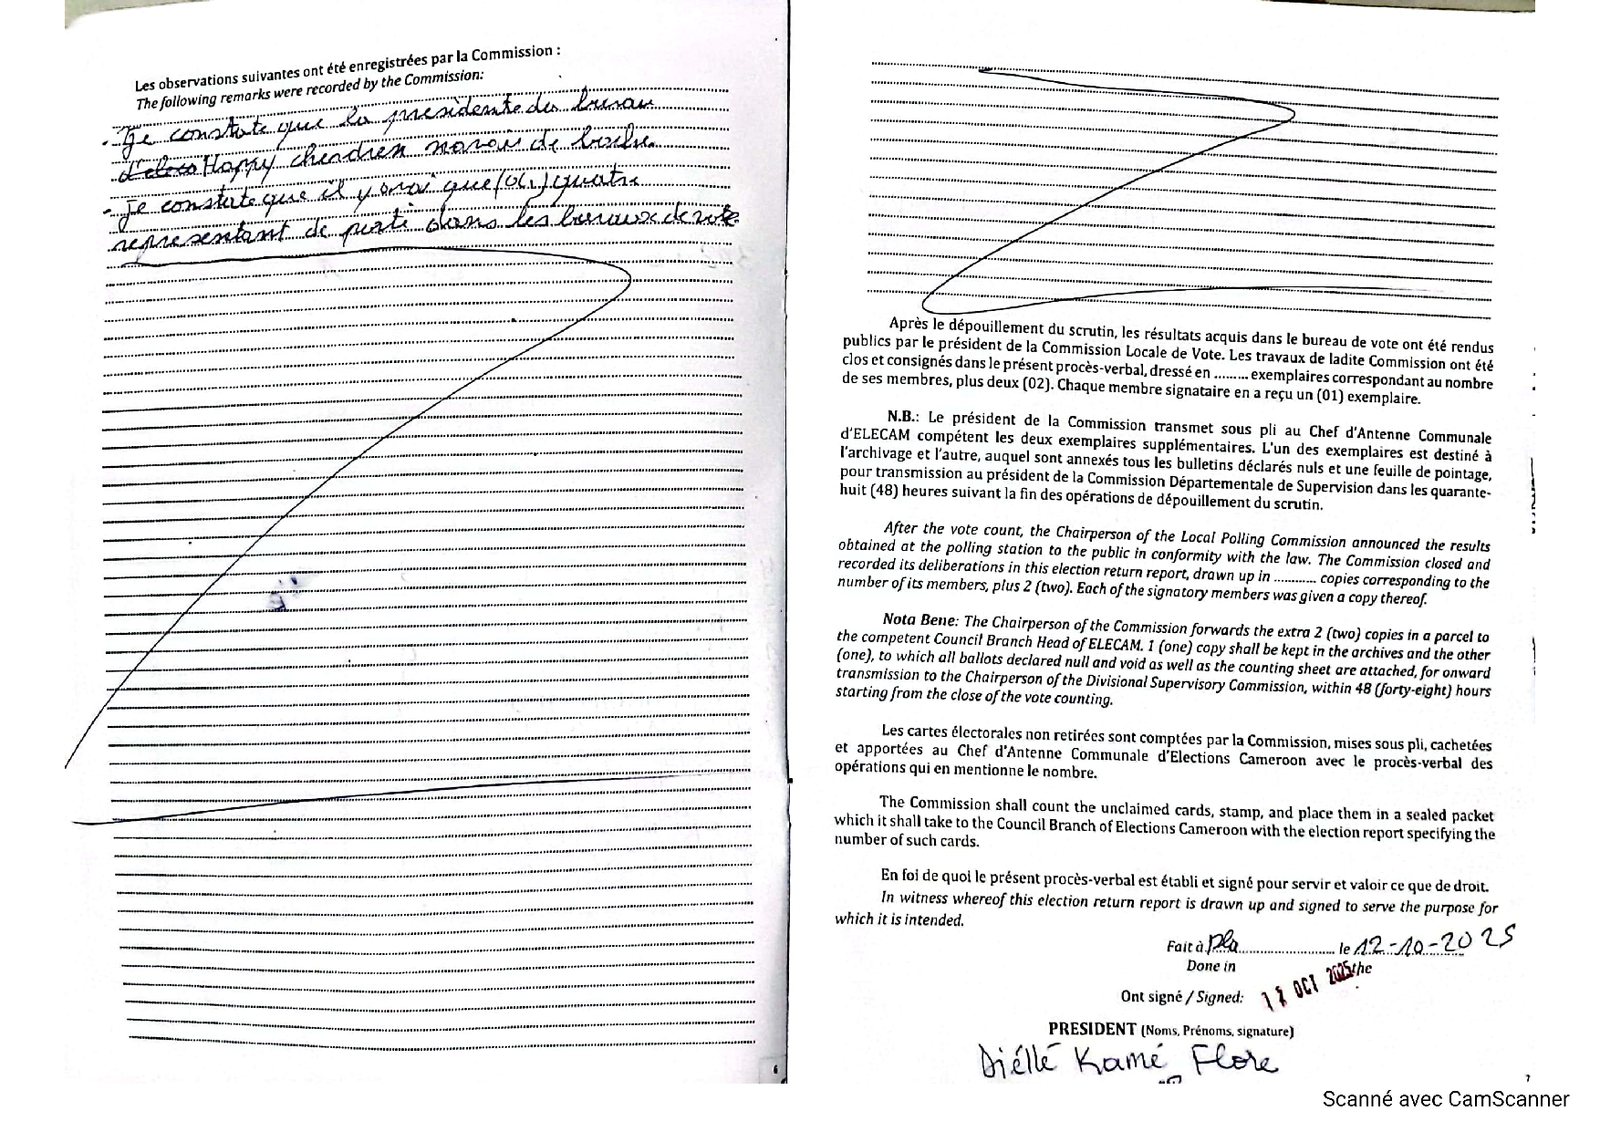 Les observations suivantes ont été enregistrées par la Commission :
The following remarks were recorded by the Commission:
- Je constate que la presidente du bureau
Happy chendren navais de
- Je constate que il y avai que (04) quatre
representant de parti dans les buraux de vote
6
Après le dépouillement du scrutin, les résultats acquis dans le bureau de vote ont été rendus
publics par le président de la Commission Locale de Vote. Les travaux de ladite Commission ont été
clos et consignés dans le présent procès-verbal, dressé en ......... exemplaires correspondant au nombre
de ses membres, plus deux (02). Chaque membre signataire en a reçu un (01) exemplaire.
N.B.: Le président de la Commission transmet sous pli au Chef d'Antenne Communale
d'ELECAM compétent les deux exemplaires supplémentaires. L'un des exemplaires est destiné à
l'archivage et l'autre, auquel sont annexés tous les bulletins déclarés nuls et une feuille de pointage,
pour transmission au président de la Commission Départementale de Supervision dans les quarante-
huit (48) heures suivant la fin des opérations de dépouillement du scrutin.
After the vote count, the Chairperson of the Local Polling Commission announced the results
obtained at the polling station to the public in conformity with the law. The Commission closed and
recorded its deliberations in this election return report, drawn up in ........... copies corresponding to the
number of its members, plus 2 (two). Each of the signatory members was given a copy thereof.
Nota Bene: The Chairperson of the Commission forwards the extra 2 (two) copies in a parcel to
the competent Council Branch Head of ELECAM. 1 (one) copy shall be kept in the archives and the other
(one), to which all ballots declared null and void as well as the counting sheet are attached, for onward
transmission to the Chairperson of the Divisional Supervisory Commission, within 48 (forty-eight) hours
starting from the close of the vote counting.
Les cartes électorales non retirées sont comptées par la Commission, mises sous pli, cachetées
et apportées au Chef d'Antenne Communale d'Elections Cameroon avec le procès-verbal des
opérations qui en mentionne le nombre.
The Commission shall count the unclaimed cards, stamp, and place them in a sealed packet
which it shall take to the Council Branch of Elections Cameroon with the election report specifying the
number of such cards.
En foi de quoi le présent procès-verbal est établi et signé pour servir et valoir ce que de droit.
In witness whereof this election return report is drawn up and signed to serve the purpose for
which it is intended.
Fait à Dla le 12-10-2025
Done in the
Ont signé / Signed: 12 OCT 2025
PRESIDENT (Noms, Prénoms, signature)
Diéllé Kamé Flore
7
Scanné avec CamScanner